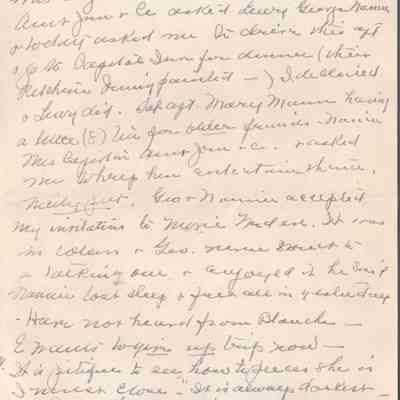 Aunt Jen & Co asked Lewy George Nannie
& today asked me to drive this aft
& go to Capitol Inn for dinner (their
Kitchen being painted —) I declined
& Lewy did. Sat aft. Mary Mann having
a little (8) tea for older friends - Nannie
Mrs. Aunt Jen & Co. & asked
me to help her entertain them.
Geo & Nannie accepted
my invitation to Movie Wed eve. It was
in colors & Geo. never went to
a talking one & enjoyed it he said
Nannie lost sleep & felt all in yesterday
- Have not heard from Blanche —
E wants to give up trip now —
It is to see how to pieces she is
I never "It is always darkest